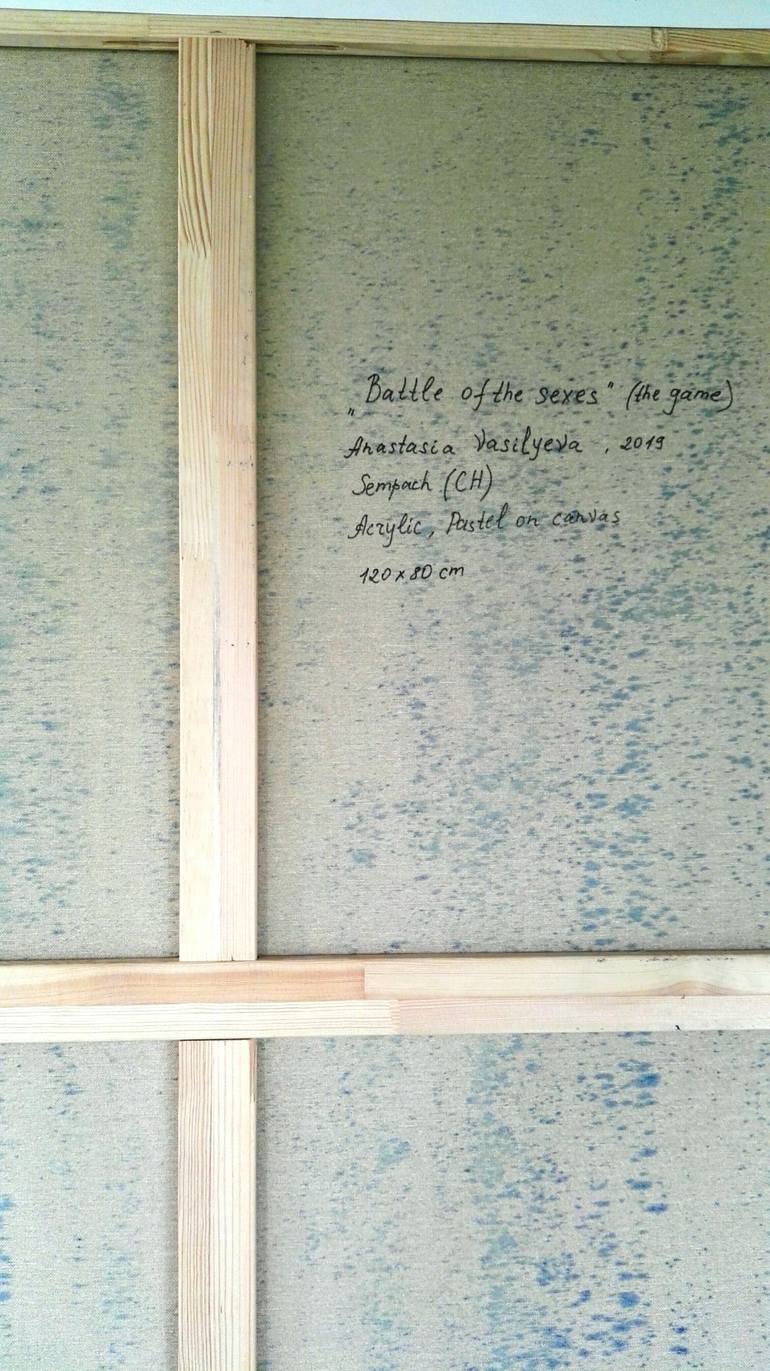 „Battle of the sexes" (the game)
Anastasia Vasilyeva, 2019
Sempach (CH)
Acrylic, Pastel on canvas
120x80 cm